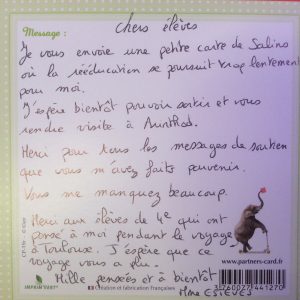 Message :
Chers élèves
Je vous envoie une petite carte de Salins
où la rééducation se poursuit trop lentement
pour moi.
J'espère bientôt pouvoir sortir et vous
rendre visite à
Merci pour tous les messages de soutien
que vous m'avez faits parvenir.
Vous me manquez beaucoup.
Merci aux élèves de 4e qui ont
pensé à moi pendant le voyage
à Toulouse. J'espère que ce
voyage vous a plu.
Mille pensées et à bientôt
Mme
www.partners-card.fr
IMPRIM'VERT
Création et fabrication françaises
3760027441270